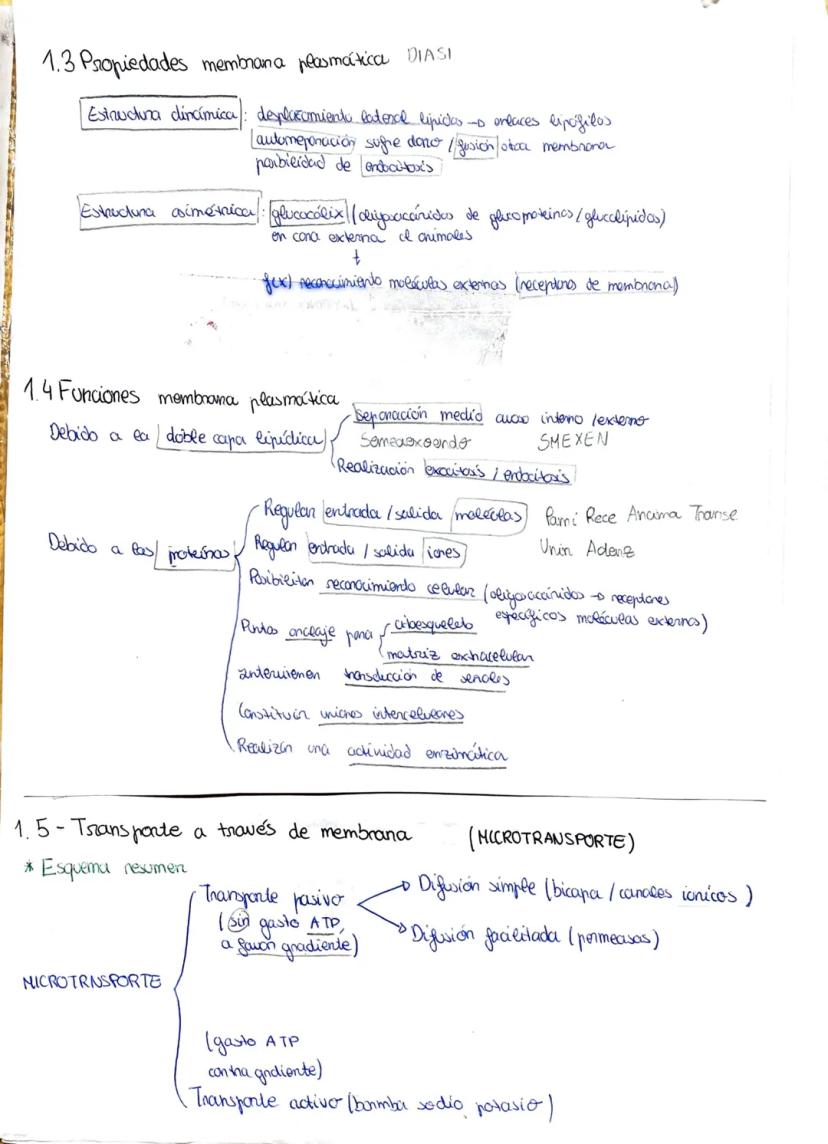 1.3 Propiedades membrana plasmática DIASI
Estructura dinámica: desplazamiento lateral lípidos → enlaces lipófilos
autorreparación sufre daño / fusión otra membrana
posibilidad de endocitosis
Estructura asimétrica: glucocálix (oligosacáridos de glucoproteínas / glucolípidos)
en cara externa cl animales
↓
f(x) reconocimiento moléculas externas (receptores de membrana)
1.4 Funciones membrana plasmática
Debido a la doble capa lipídica
Separación medio acuoso interno / externo
Semeaexoendo SMEXEN
Realización exocitosis / endocitosis
Debido a las proteínas
Regular entrada / salida moléculas Parni Rece Ancima Transe
Regular entrada / salida iones Unin Adenz
Posibilitan reconocimiento celular (oligosacáridos → receptores
específicos moléculas externas)
Puntos anclaje para citoesqueleto
matriz extracelular
intervienen transducción de señales
Constituir uniones intercelulares
Realizan una actividad enzimática
1.5 - Transporte a través de membrana (MICROTRANSPORTE)
* Esquema resumen
MICROTRNSPORTE
Transporte pasivo
(sin gasto ATP,
a favor gradiente)
→ Difusión simple (bicapa / canales iónicos)
→ Difusión facilitada (permeasas)
(gasto ATP
contra gradiente)
Transporte activo (bomba sodio potasio)